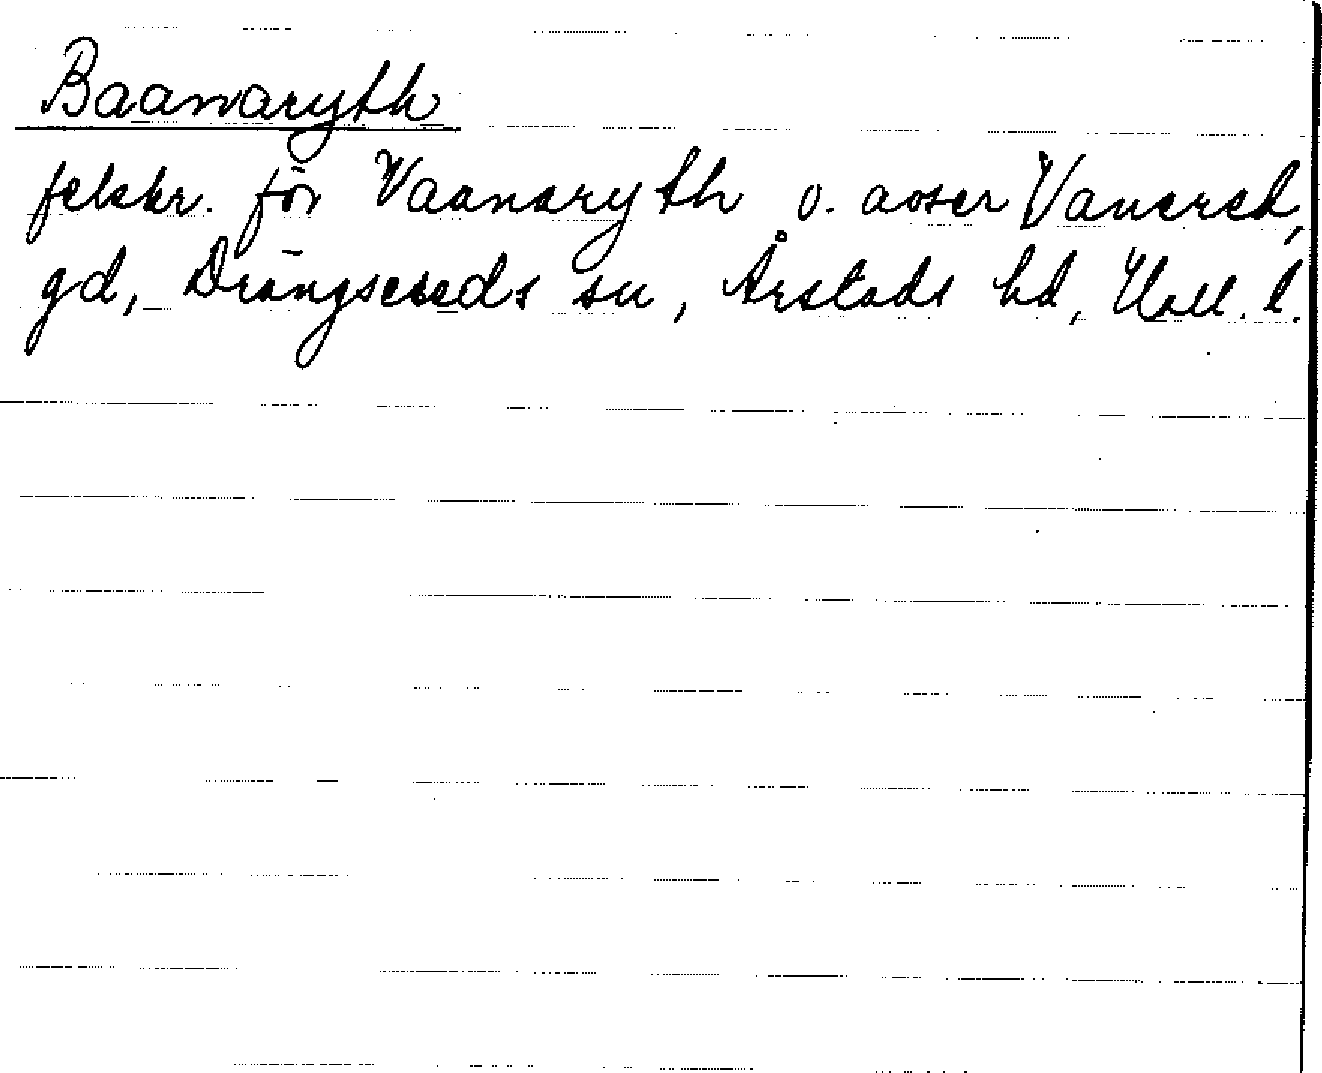 Baanaryth
felskr. för Vaanaryth o. avser Vanered,
gd, Drängsereds sn, Årstads hd, Hall. l.